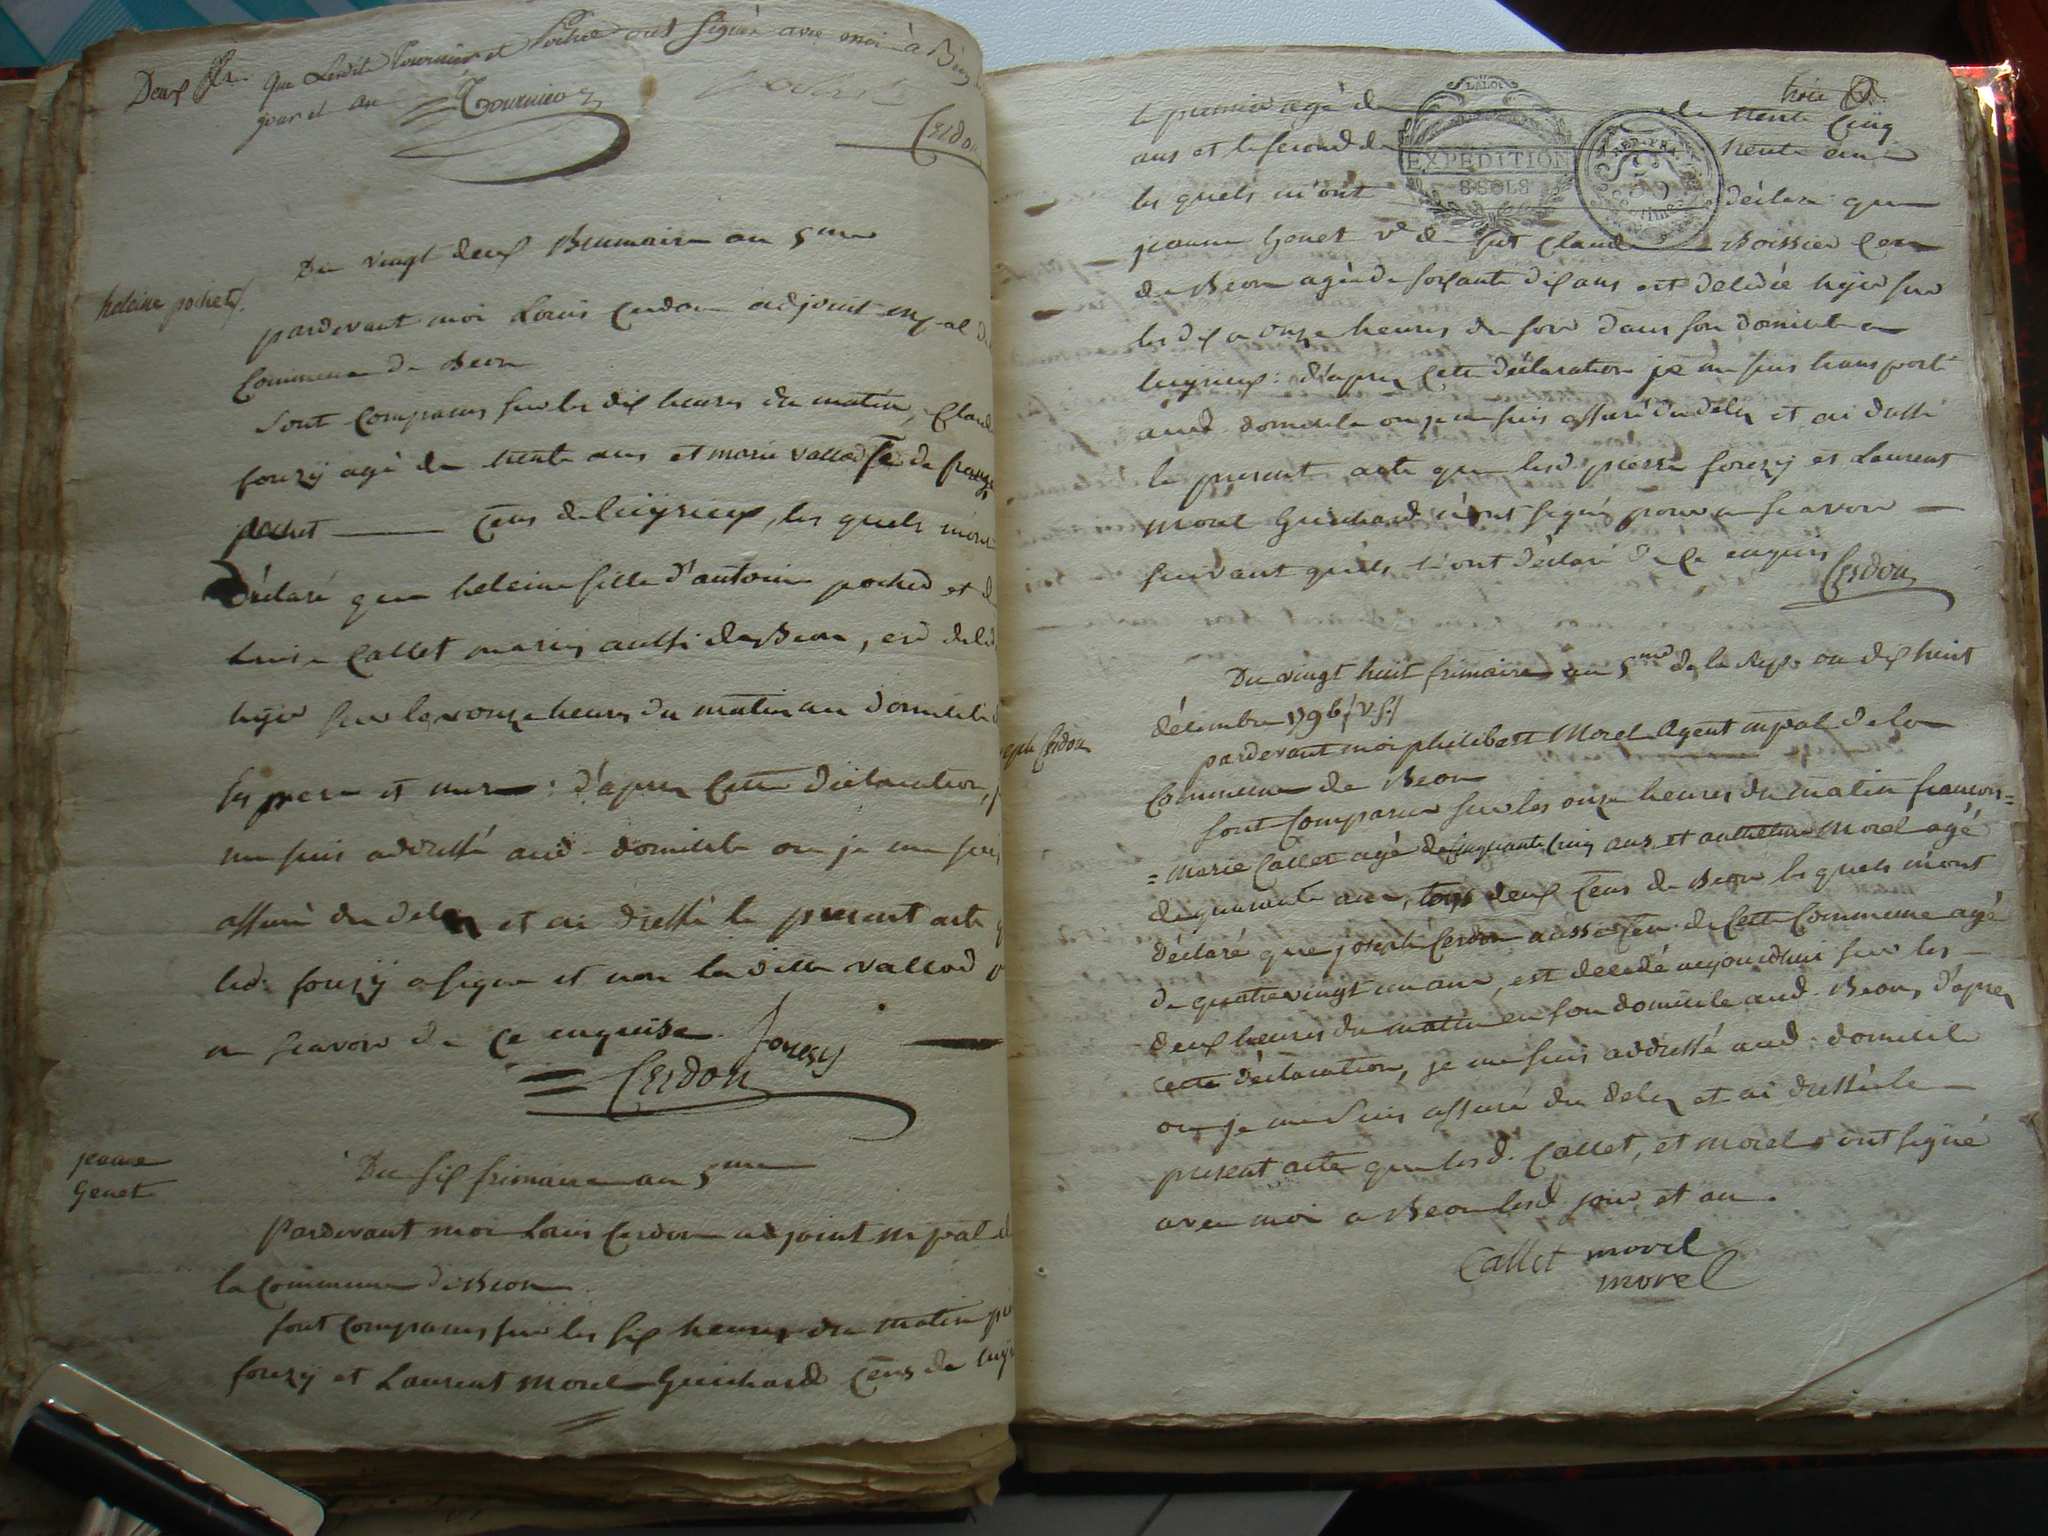 Deux
que Lesdits Tournier et Pochet ont signé avec moi à Béon
jour et an
Tournier
Cerdon
Du vingt deux Brumaire an 5me
heleine pochet
pardevant moi Louis Cerdon adjoint mpal de
Commune de Beon
Sont Comparus sur les dix heures du matin, Claude
fouzÿ agé de trente ans et marie vallod fe de françois
pochet Cens de luÿrieux, les quels m'ont
déclaré que heleine fille d'antoine pochet et de
Louise Callet mariés aussi de Beon, est décédé
hÿer sur les onze heures du matin au domicile de
ses pere et mere : d'après Cette déclaration, je
me suis addressé aud. domicile ou je me suis
assuré du déces et ai dressé le present acte que
led. fouzÿ a signé et non la ditte vallod pour
ne scavoir de Ce enquise. fouzy
Cerdon
jeanne
Genet
Du six frimaire an 5me
Pardevant moi Louis Cerdon adjoint mpal de
la Commune de Beon
sont Comparus sur les six heures du matin pierre
fouzÿ et Laurent Morel Guichard Cens de luÿrieux
trois
le premier agé de de trente Cinq
ans et le second de trente un
LALOI
EXPEDITION
8 SOLS
REP. FRA.
les quels m'ont déclaré que
jeanne Genet ve de fut Claude Boissier Cen
de Beon agée de soixante dix ans est décédée hÿer sur
les dix a onze heures du soir dans son domicile a
luÿrieux : d'après Cette déclaration je me suis transporté
aud. domicile ou je me suis assuré du déces et ai dressé
le present acte que lesd. pierre fouzÿ et Laurent
Morel Guichard n'ont signé pour ne scavoir
suivant qu'ils l'ont déclaré de Ce enquis
Cerdon
Du vingt huit frimaire an 5me de la Rep. ou dix huit
décembre 1796 (v.s.)
joseph Cerdon
pardevant moi philibert Morel Agent mpal de la
Commune de Beon
sont Comparus sur les onze heures du matin francois=
=Marie Callet agé de cinquante cinq ans et anthelme Morel agé
de quarante ans, tous deux Cens de Beon les quels m'ont
déclaré que joseph Cerdon aussi Cen de Cette Commune agé
de quatrevingt un ans, est decedé aujourd'hui sur les
deux heures du matin en son domicile aud. Beon, d'après
cette déclaration, je me suis addressé aud. domicile
ou je me suis assuré du déces et ai dressé le
present acte que lesd. Callet, et Morel ont signé
avec moi a Beon lesd. jour et an.
Callet morel
morel